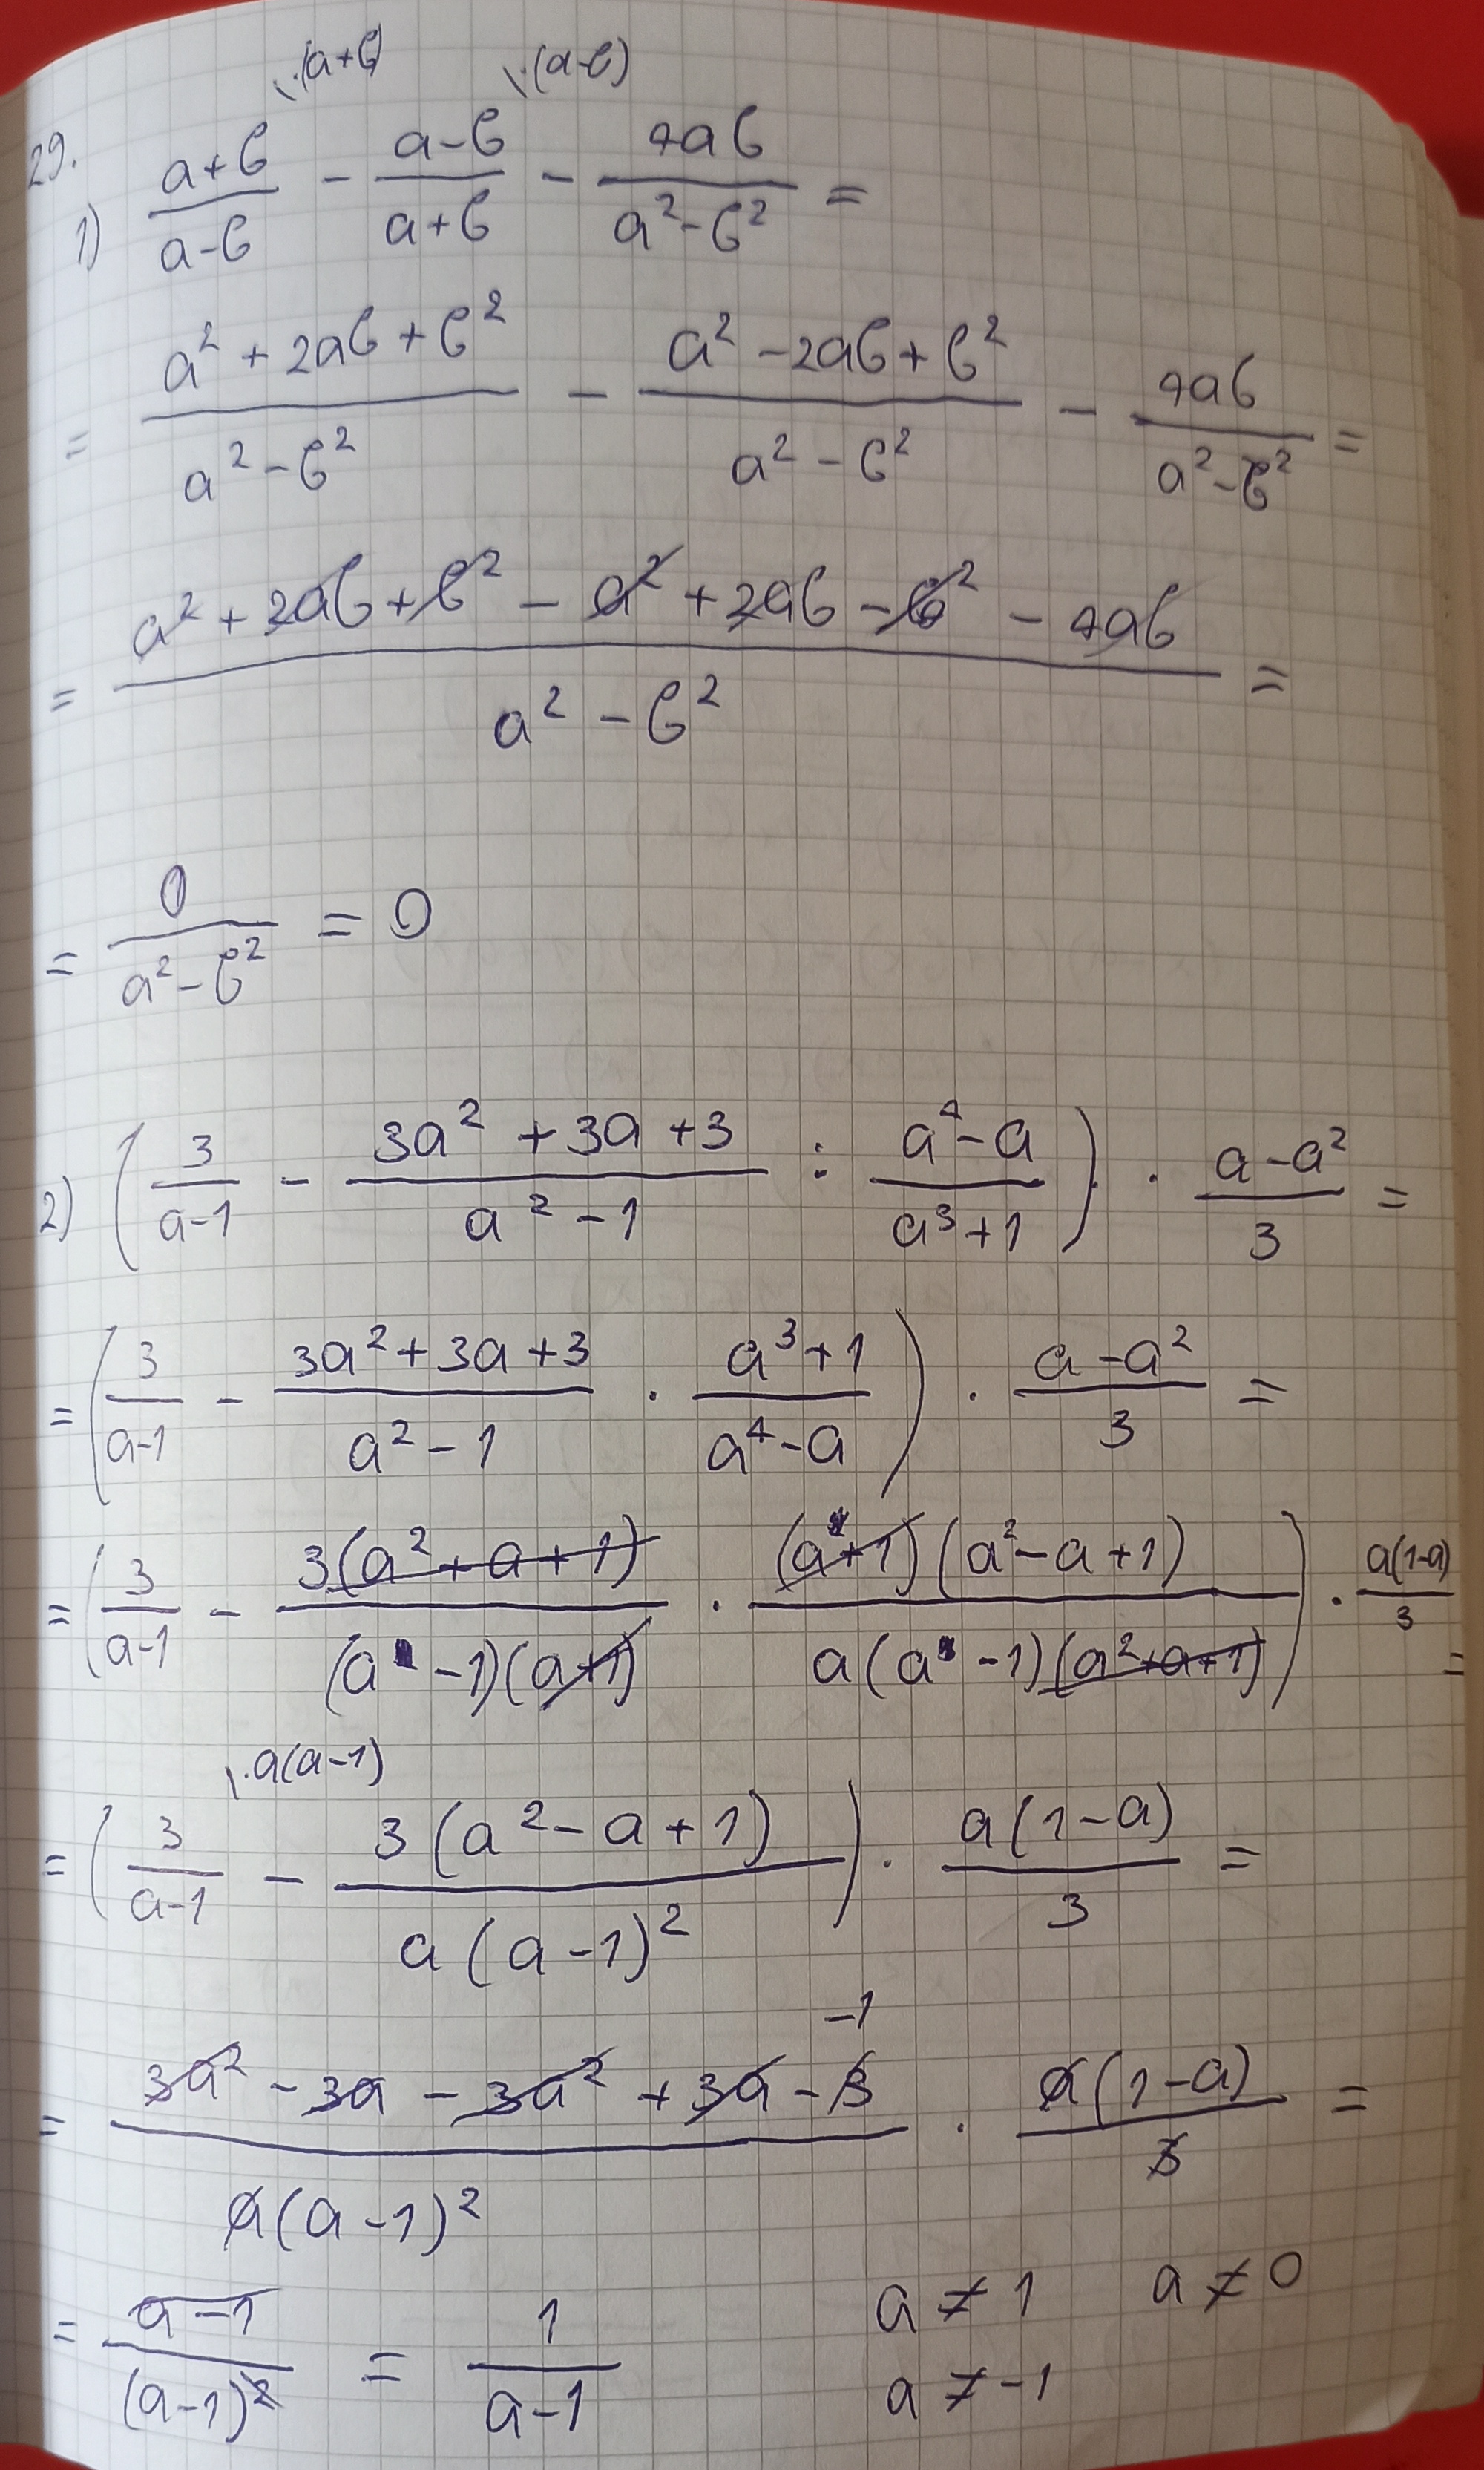 \·(a+b) \·(a-b)
29.
1) (a+b)/(a-b) - (a-b)/(a+b) - 4ab/(a²-b²) =
= (a²+2ab+b²)/(a²-b²) - (a²-2ab+b²)/(a²-b²) - 4ab/(a²-b²) =
= (a²+2ab+b²-a²+2ab-b²-4ab)/(a²-b²) =
= 0/(a²-b²) = 0
2) (3/(a-1) - (3a²+3a+3)/(a²-1) : (a⁴-a)/(a³+1)) · (a-a²)/3 =
= (3/(a-1) - (3a²+3a+3)/(a²-1) · (a³+1)/(a⁴-a)) · (a-a²)/3 =
= (3/(a-1) - 3(a²+a+1)/((a-1)(a+1)) · (a+1)(a²-a+1)/(a(a-1)(a²+a+1))) · a(1-a)/3 =
\·a(a-1)
= (3/(a-1) - 3(a²-a+1)/(a(a-1)²)) · a(1-a)/3 =
-1
= (3a²-3a-3a²+3a-3)/(a(a-1)²) · a(1-a)/3 =
= (a-1)/(a-1)² = 1/(a-1) a≠1 a≠0
a≠-1